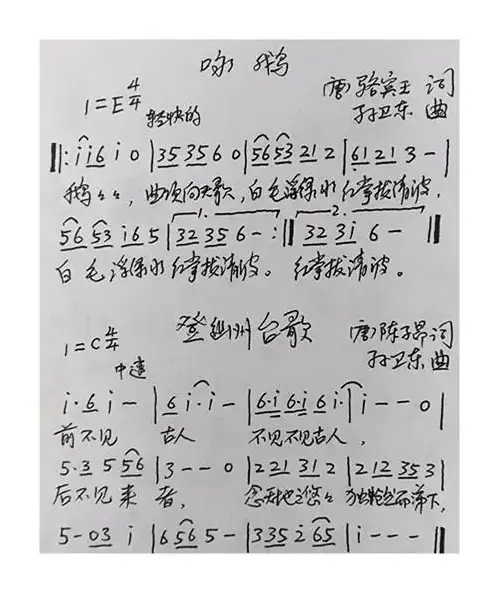 咏 鹅
1=E 4/4
轻快的
(唐)骆宾王 词
孙卫东 曲
‖: i i 6 i 0 | 35 35 6 0 | 56 53 21 2 | 61 21 3 - |
鹅々々, 曲项向天歌, 白毛浮绿水 红掌拨清波.
56 53 i6 5 | 1. 32 35 6 - :‖ 2. 32 3i 6 - ‖
白毛浮绿水 红掌拨清波。 红掌拨清波。
登幽州台歌
1=C 4/4
中速
(唐)陈子昂 词
孙卫东 曲
i· 6 i - | 6 i· i - | 6·i 6·i 6 i· | i - - 0 |
前不见 古人 不见不见古人,
5·3 5 56 | 3 - - 0 | 221 31 2 | 212 35 3 |
后不见来者, 念天地之悠々 独怆然而涕下,
5 - 03 i | 6 56 5 - | 335 2 65 | i - - - ‖